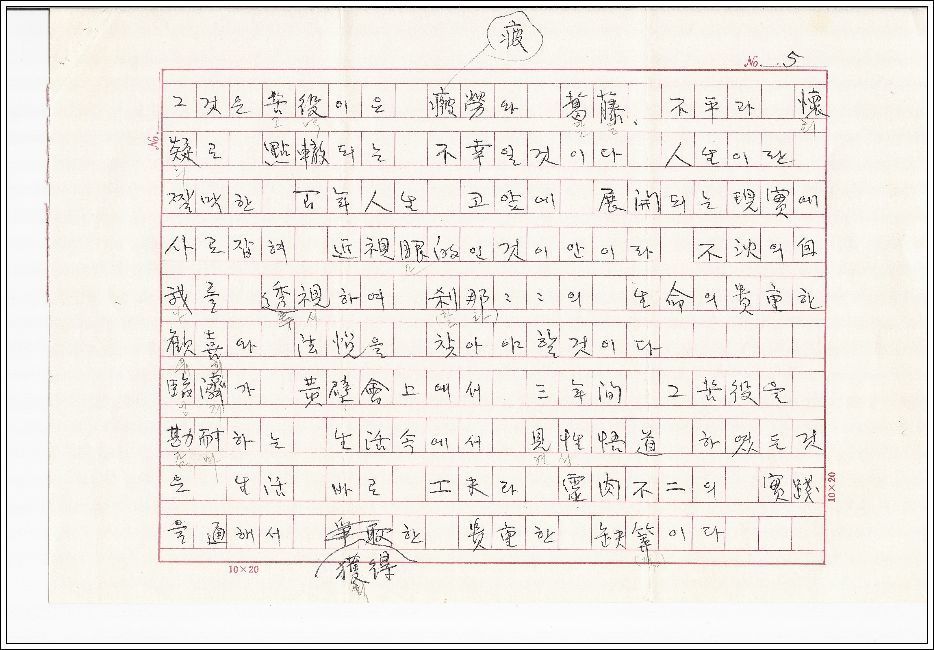 疲
No. 5
No.
그것은 苦役이은 疲勞와 葛藤、 不平과 懷
疑로 點轍되는 不幸일것이다 人生이란
짤막한 百年人生 코앞에 展開되는 現實에
사로잡혀 近視眼的인것이안이라 不沈의自
我를 透視하여 刹那〻〻의 生命의貴重한
歡喜와 法悅을 찾아야할것이다
臨濟가 黃壁會上에서 三年間 그苦役을
勘耐하는 生活속에서 見性悟道 하였든것
은 生活 바로 工夫라 靈肉不二의 實踐
을通해서 한 貴重한 이다
獲得
10×20
10×20